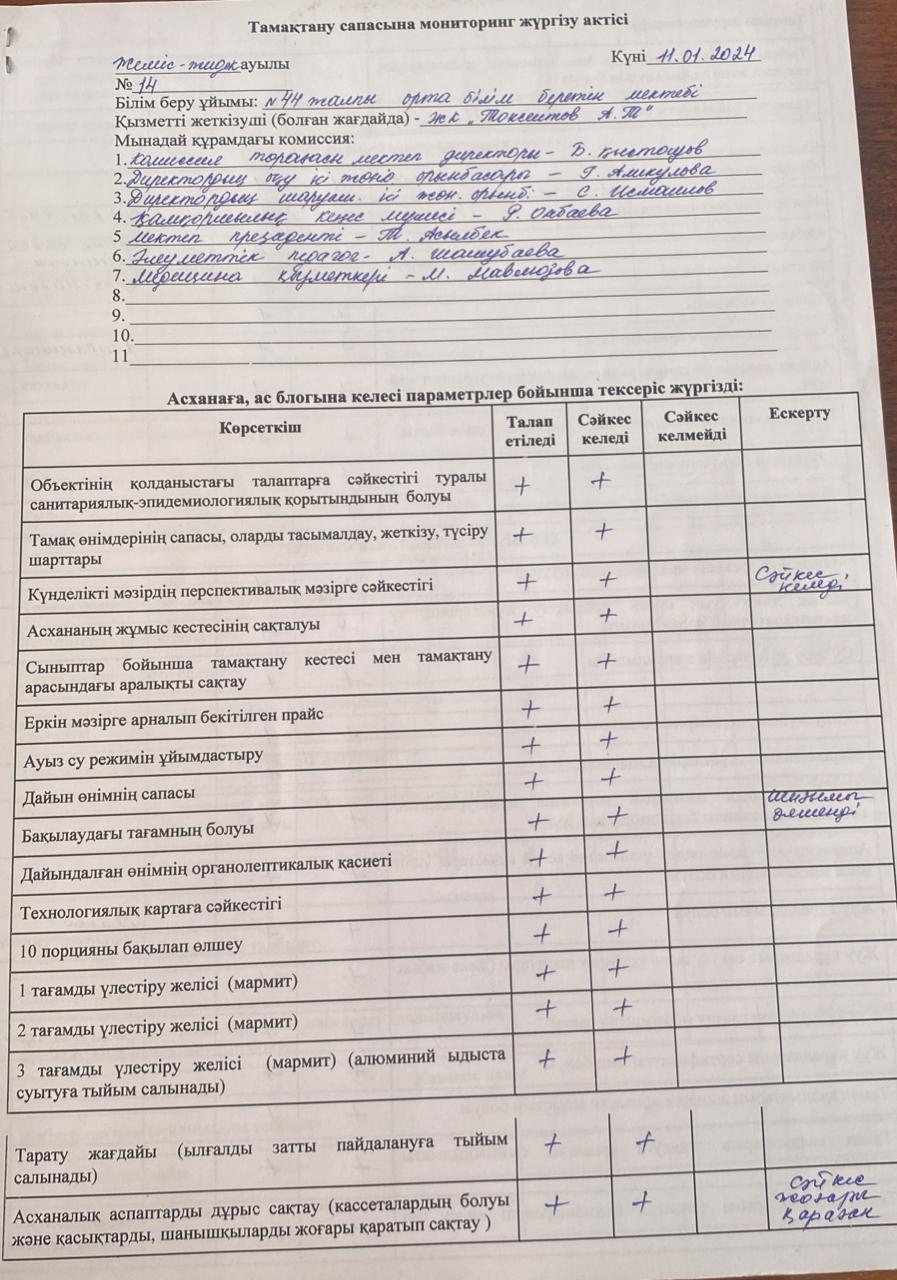 Тамақтану сапасына мониторинг жүргізу актісі
Жеміс-жидек ауылы Күні 11.01.2024
№ 14
Білім беру ұйымы: №44 жалпы орта білім беретін мектебі
Қызметті жеткізуші (болған жағдайда) - ЖК „Токсеитов А.Т"
Мынадай құрамдағы комиссия:
1. Комиссия төрағасы мектеп директоры - Б.
2. Директордың оқу ісі жөнін орынбасары - Г. Амикулова
3. Директордың шаруаш. ісі жөн. орынб: - С. Исмаилов
4. Қамқоршылық кеңес мүшесі - Оябаева
5 Мектеп президенті - Т. Асылбек
6. Әлеуметтік педагог - А. Шашубаева
7. Медицина қызметкері - М.
8.
9.
10.
11
Асханаға, ас блогына келесі параметрлер бойынша тексеріс жүргізді:
Көрсеткіш Талап етіледі Сәйкес келеді Сәйкес келмейді Ескерту
Объектінің қолданыстағы талаптарға сәйкестігі туралы
санитариялық-эпидемиологиялық қорытындының болуы + +
Тамақ өнімдерінің сапасы, оларды тасымалдау, жеткізу, түсіру
шарттары + +
Күнделікті мәзірдің перспективалық мәзірге сәйкестігі + + Сәйкес келеді
Асхананың жұмыс кестесінің сақталуы + +
Сыныптар бойынша тамақтану кестесі мен тамақтану
арасындағы аралықты сақтау + +
Еркін мәзірге арналып бекітілген прайс + +
Ауыз су режимін ұйымдастыру + +
Дайын өнімнің сапасы + +
Бақылаудағы тағамның болуы + +
Дайындалған өнімнің органолептикалық қасиеті + +
Технологиялық картаға сәйкестігі + +
10 порцияны бақылап өлшеу + +
1 тағамды үлестіру желісі (мармит) + +
2 тағамды үлестіру желісі (мармит) + +
3 тағамды үлестіру желісі (мармит) (алюминий ыдыста
суытуға тыйым салынады) + +
Тарату жағдайы (ылғалды затты пайдалануға тыйым
салынады) + +
Асханалық аспаптарды дұрыс сақтау (кассеталардың болуы
және қасықтарды, шанышқыларды жоғары қаратып сақтау ) + + Сәйкес жоғары қараған